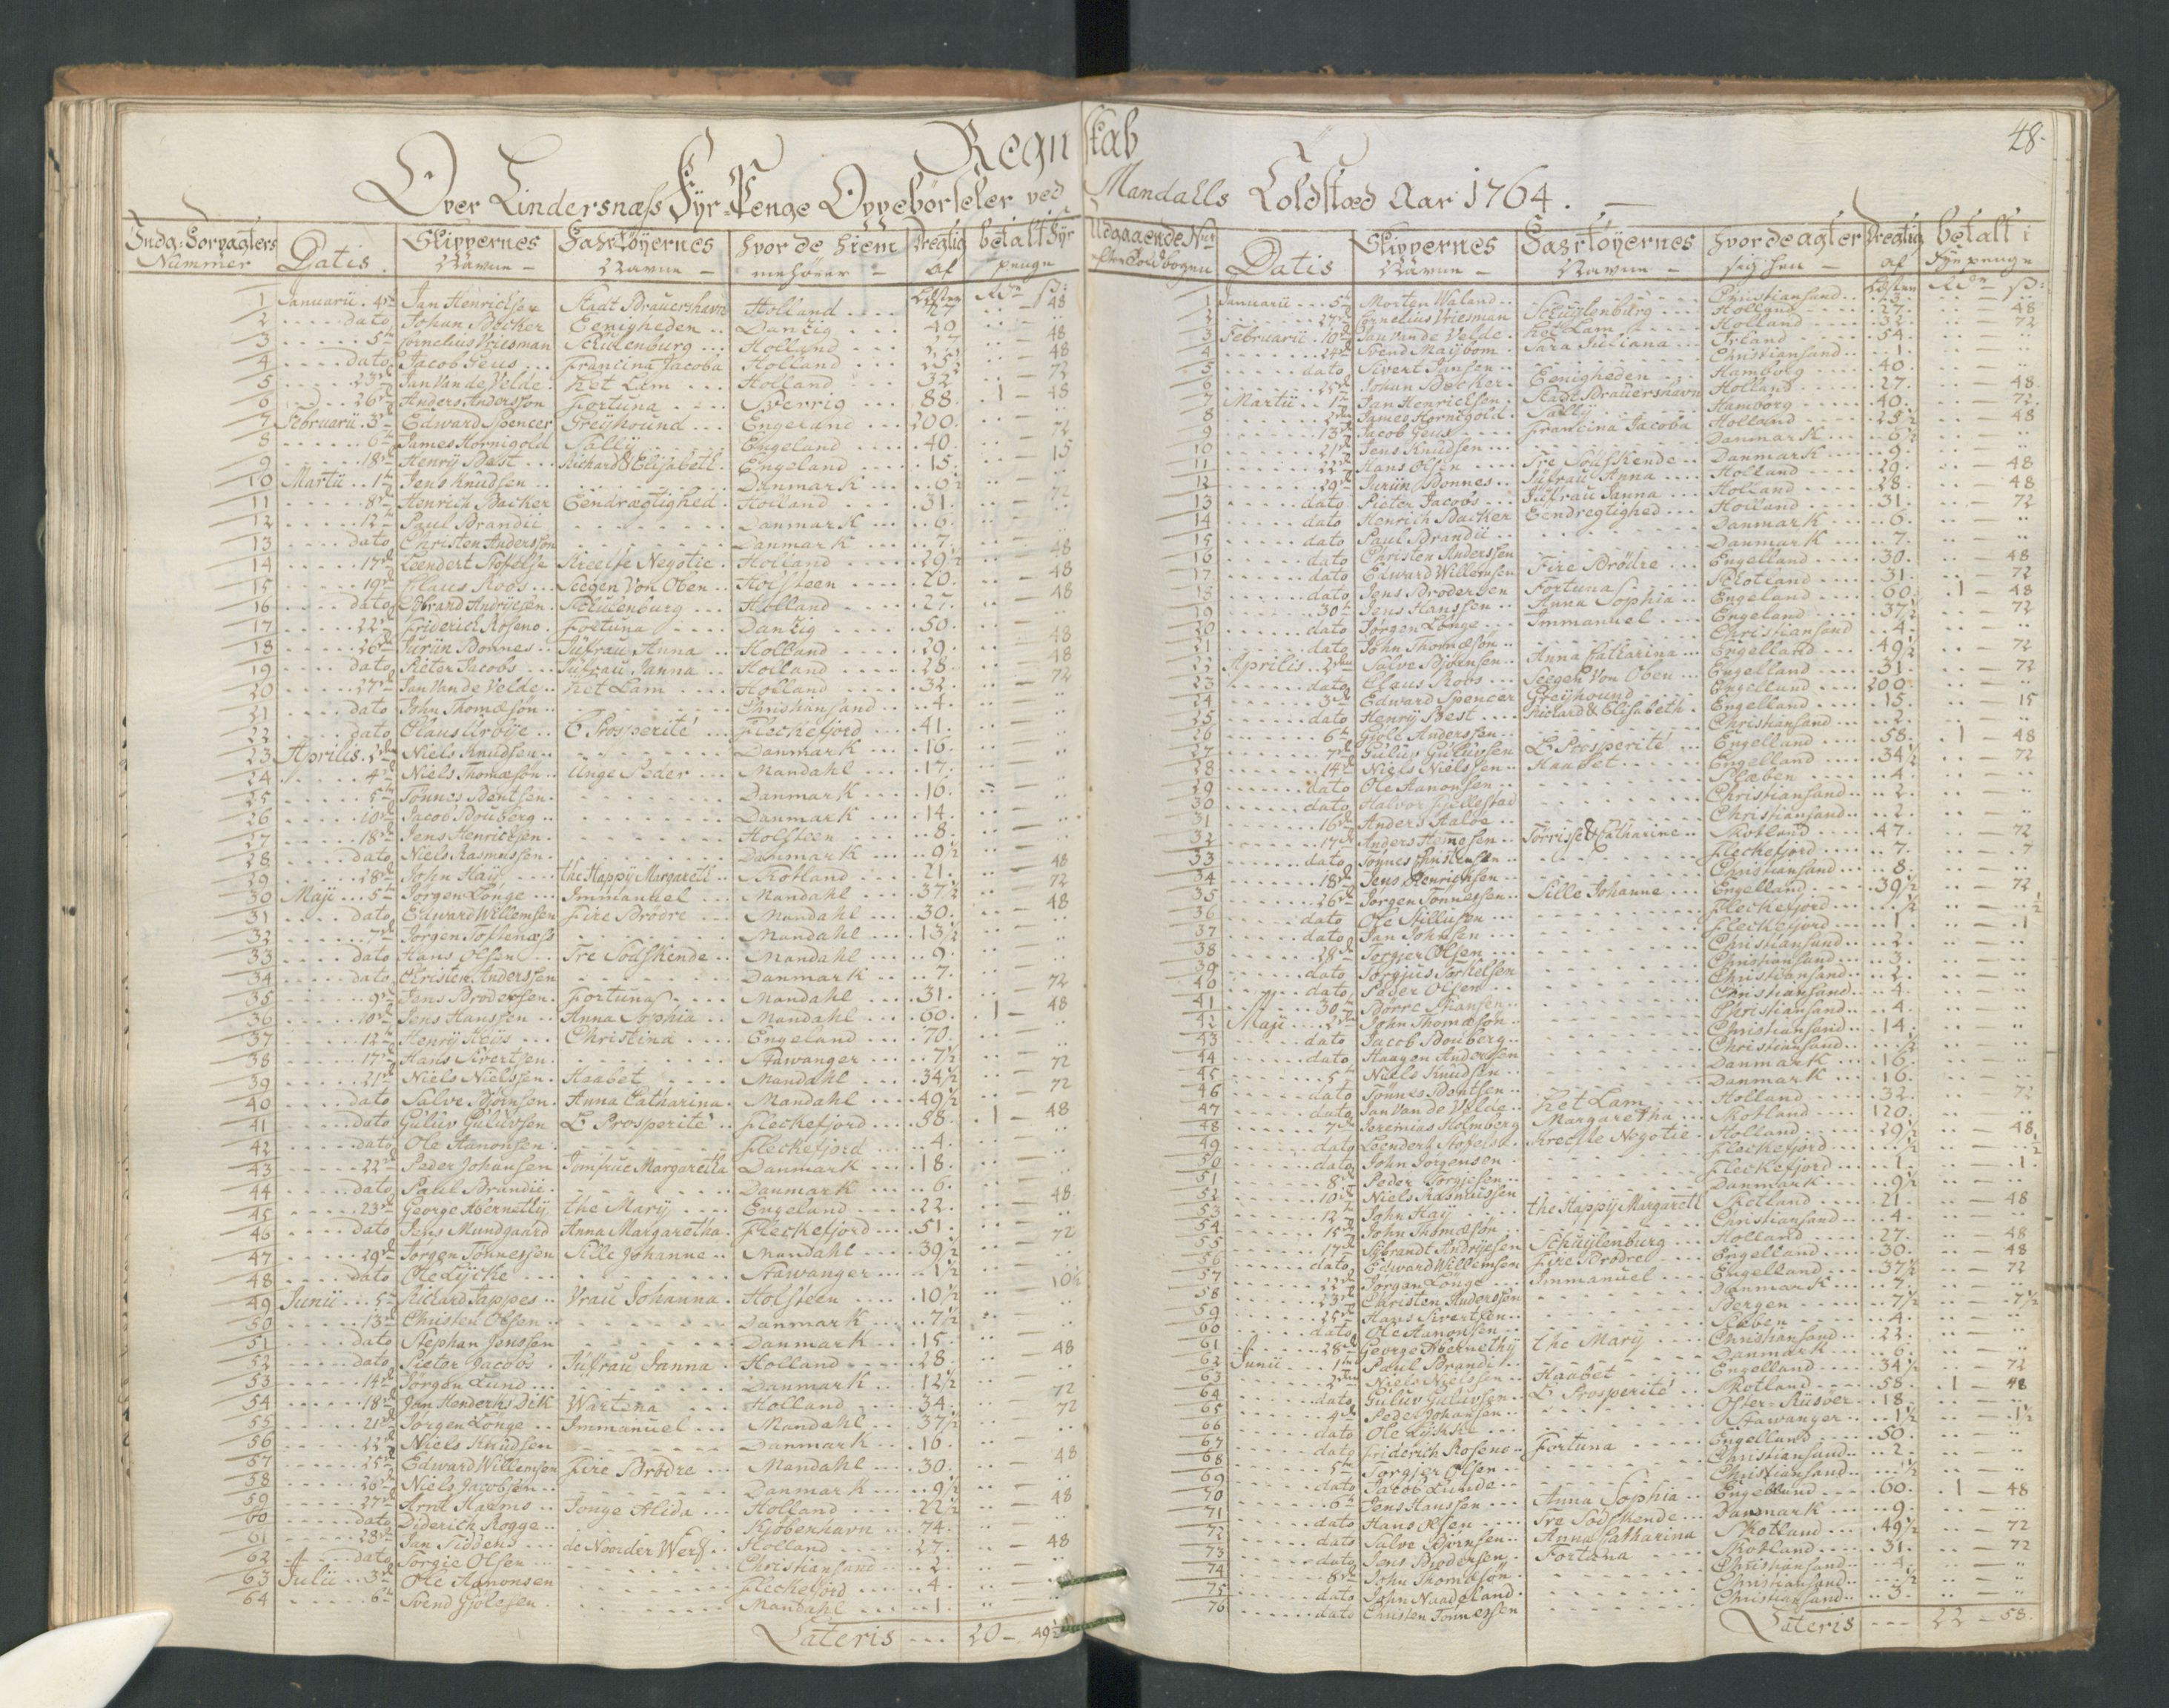 48.
Regnskab
Over Lindersnæss Fyr-Penge Oppebörseler ved Mandahls Toldsted Aar 1764. —
Indg: Forpagters Nummer | Datis | Skippernes Navne | Fahrtöyernes Navne | hvor de hiemmehörer | Dregtig af Læster | betalt Fyr penge Rdr ß:
1 Januarii 4de Jan Henrichsen Stadt Brauershavn Holland 27 48
2 dato Johan Böcker Eenigheden Danzig 40 ..
3 5te Cornelius Vriesman Scuÿlenburg Holland 27 48
4 dato Jacob Geus Francina Jacoba Holland 25½ 48
5 23de Jan Van de Velde het Lam Holland 32 72
6 26de Anders Andersson Fortuna Sverrig 88. 1 - 48
7 Februarii 3de Edward Spencer Greÿhound Engeland 200. ..
8 6te James Hornigold Sallÿ Engeland 40. 72
9 18de Henrÿ Best Richard & Elisabeth Engeland 15. 15
10 Martii 1te Jens Knudsen Danmark 6½ ..
11 8de Henrich Backer Eendrægtighed Holland 31. 72
12 12te Paul Brandii Danmark 6. ..
13 dato Christen Andersson Danmark 7. ..
14 17de Leendert Stofelse Kreelse Negotie Holland 29½ 48
15 19de Claus Roos Seegen Von Oben Holsteen 20. 48
16 dato Sÿbrand Andrÿesen Scuÿlenburg Holland 27. 48
17 22de Friderich Roseno Fortuna Danzig 50. ..
18 26de Juriin Bonnes Jufrau Anna Holland 29. 48
19 dato Pieter Jacobs Jufrau Janna Holland 28. 48
20 27de Jan Van de Velde het Lam Holland 32. 72
21 dato John Thomæson Christiansand 4. ..
22 dato Claus Urbÿe L' Prosperité Fleckefjord 41. ..
23 Aprilis 2den Niels Knudsen Danmark 16. ..
24 4de Niels Thomæson Unge Peder Mandahl 17. ..
25 5te Tönnes Bentsen Danmark 16. ..
26 10de Jacob Bouberg Danmark 14. ..
27 18de Jens Henrichsen Holsteen 8. ..
28 dato Niels Rasmussen Danmark 9½ ..
29 28de John Haÿ the Happÿ Margarett Skotland 21. 48
30 Maji 5te Jörgen Longe Immanuel Mandahl 37½ 72
31 dato Edward Willemsen Fire Brödre Mandahl 30. 48
32 7de Jörgen Toftenæss Mandahl 13½ ..
33 dato Hans Olsen Tre Södskende Mandahl 9. ..
34 dato Christen Anderssen Danmark 7. ..
35 9de Jens Brodersen Fortunas Mandahl 31. 72
36 10de Jens Hanssen Anna Sophia Mandahl 60. 1 - 48
37 12te Henrÿ Heÿs Christina Engeland 70. ..
38 17de Hans Sivertsen Stawanger 7½ ..
39 21de Niels Nielssen Haabet Mandahl 34½ 72
40 dato Salve Björnsen Anna Catharina Mandahl 49½ 72
41 dato Guluv Guluvsen L' Prosperité Fleckefjord 58. 1 - 48
42 dato Ole Aanonsen Fleckefjord 4. ..
43 22de Peder Johansen Jomfrue Margaretha Danmark 18. ..
44 dato Paul Brandii Danmark 6. ..
45 23de George Abernethÿ the Marÿ Engeland 22. 48
46 dato Jens Mundgaard Anna Margaretha Fleckefjord 51. ..
47 29de Jörgen Tönnessen Sille Johanne Mandahl 39½ 72
48 dato Ole Lÿcke Stawanger 1½ ..
49 Junii 5te Richard Tappes Vrau Johanna Holsteen 10½ 10½
50 13de Christen Olsen Danmark 7½ ..
51 dato Stephan Jenssen Danmark 15. ..
52 dato Pieter Jacobs Jufrau Janna Holland 28. 48
53 14de Jörgen Lund Danmark 12½ ..
54 18de Jan Henderks Dik Wartena Holland 34. 72
55 21de Jörgen Longe Immanuel Mandahl 37½ 72
56 22de Niels Knudsen Danmark 16 ..
57 25de Edward Willemsen Fire Brödre Mandahl 30. 48
58 26de Niels Jacobsen Danmark 9½ ..
59 27de Arnt Harms Jonge Alida Holland 22½ 48
60 dato Diderich Rogge Kjøbenhavn 74. ..
61 28de Jan Tidoens de Noorder Werf Holland 27. 48
62 dato Torgie Olsen Christiansand 2. ..
63 Julii 3de Ole Aanonsen Fleckefjord 4. ..
64 6te Svend Gjölesen Mandahl 1. ..
Lateris --- 20 - 49½
Udgaaende No efter Toldbogen | Datis | Skippernes Navne | Fahrtöyernes Navne | hvor de agter sig hen | Dregtig af Læster | betalt i Fyr penge Rdr ß:
1 Januarii 5te Morten Waland Christiansand 3. ..
2 27de Cornelius Vriesman Scuÿlenburg Holland 27. 48
3 Februarii 10de Jan Van de Velde het Lam Holland 32. 72
4 24de Svend Maÿbom Sara Juliana Irland 54. ..
5 dato Sivert Jansen Christiansand 1. ..
6 25de Johan Böcker Eenigheden Hamborg 40. ..
7 Martii 1te Jan Henrichsen Stadt Brauershavn Holland 27. 48
8 2den James Hornigold Sallÿ Hamborg 40. 72
9 13de Jacob Geus Francina Jacoba Holland 25½ 48
10 21de Jens Knudsen Danmark 6½ ..
11 22de Hans Olsen Tre Södskende Danmark 9. ..
12 29de Juriin Bonnes Jufrau Anna Holland 29. 48
13 dato Pieter Jacobs Jufrau Janna Holland 28. 48
14 dato Henrich Backer Eendregtighed Holland 31. 72
15 dato Paul Brandii Danmark 6. ..
16 dato Christen Anderssen Danmark 7. ..
17 dato Edward Willemsen Fire Brödre Engelland 30. 48
18 dato Jens Brodersen Fortunas Skotland 31. 72
19 30te Jens Hanssen Anna Sophia Engeland 60. 1 - 48
20 dato Jörgen Longe Immanuel Engeland 37½ 72
21 dato John Thomæson Christiansand 4. ..
22 Aprilis 2den Salve Björnsen Anna Catharina Engelland 49½ 72
23 dato Claus Roos Seegen Von Oben Engelland 31. 72
24 3de Edward Spencer Greÿhound Engelland 200. ..
25 dato Henrÿ Best Richard & Elisabeth Engelland 15. 15
26 6te Gjöle Anderssen Christiansand 2. ..
27 7de Guluv Guluvsen L' Prosperité Engelland 58. 1 - 48
28 14de Niels Nielssen Haabet Engelland 34½ 72
29 dato Ole Aanonsen Plæben 4. ..
30 dato Halvor Fjellestad Christiansand 2. ..
31 16de Anders Haloe Christiansand 2. ..
32 17de Anders Homesen Torrisse & Catharine Skotland 47. 72
33 dato Tönnes Christensen Fleckefjord 7. 7
34 18de Jens Henrichsen Christiansand 8. ..
35 26de Jörgen Tönnessen Sille Johanne Engelland 39½ 72
36 dato Ole Stilluson Fleckefjord ½ ½
37 dato Jan Johnsen Fleckefjord 1. 1
38 28de Torgjer Olsen Christiansand 2. ..
39 dato Torgjus Torkelsen Christiansand 3. ..
40 dato Peder Olsen Christiansand 2. ..
41 30te Börre Hansen Christiansand 4. ..
42 Maji 2den John Thomæson Christiansand 4. ..
43 dato Jacob Bouberg Christiansand 14. ..
44 dato Haagen Anderssen Christiansand ½ ..
45 5te Niels Knudsen Danmark 16. ..
46 dato Tönnes Bentsen Danmark 16. ..
47 dato Jan Van de Velde het Lam Holland 32. 72
48 7de Jeremias Holmberg Margaretha Skotland 120. ..
49 dato Leendert Stofelse Kreelse Negotie Holland 29½ 48
50 dato John Jörgensen Fleckefjord ½ ½
51 8de Peder Torgjesen Fleckefjord 1. 1
52 10de Niels Rasmussen Danmark 9½ ..
53 12te John Haÿ the Happÿ Margarett Skotland 21. 48
54 15de John Thomæson Christiansand 4. ..
55 17de Sÿbrandt Andrÿesen Scuÿlenburg Holland 27. 48
56 dato Edward Willemsen Fire Brödre Engelland 30. 48
57 22de Jörgen Longe Immanuel Engelland 37½ 72
58 23de Christen Anderssen Danmark 7. ..
59 25de Hans Sivertsen Bergen 7½ 7½
60 dato Ole Aanonsen Plæben 4. ..
61 28de George Abernethÿ the Marÿ Christiansand 22. ..
62 Junii 1te Paul Brandi Danmark 6. ..
63 2den Niels Nielssen Haabet Engelland 34½ 72
64 dato Guluv Guluvsen L' Prosperité Skotland 58. 1 - 48
65 4de Peder Johansen Oster-Riisöer 18. ..
66 dato Ole Lÿkke Stawanger 1½ 1½
67 dato Friderich Roseno Fortuna Engelland 50. ..
68 5te Torgjer Olsen Christiansand 2. ..
69 dato Jacob Lunde Christiansand ½ ..
70 6te Jens Hanssen Anna Sophia Engelland 60. 1 - 48
71 dato Hans Olsen Tre Södskende Danmark 9. ..
72 dato Salve Björnsen Anna Catharina Skotland 49½ 72
73 dato Jens Brodersen Fortuna Skotland 31. 72
74 8de John Thomæson Christiansand 4. ..
75 dato John Naadeland Christiansand ½ ..
76 dato Christen Tönnessen Christiansand 3. ..
Lateris --- 22 - 58.